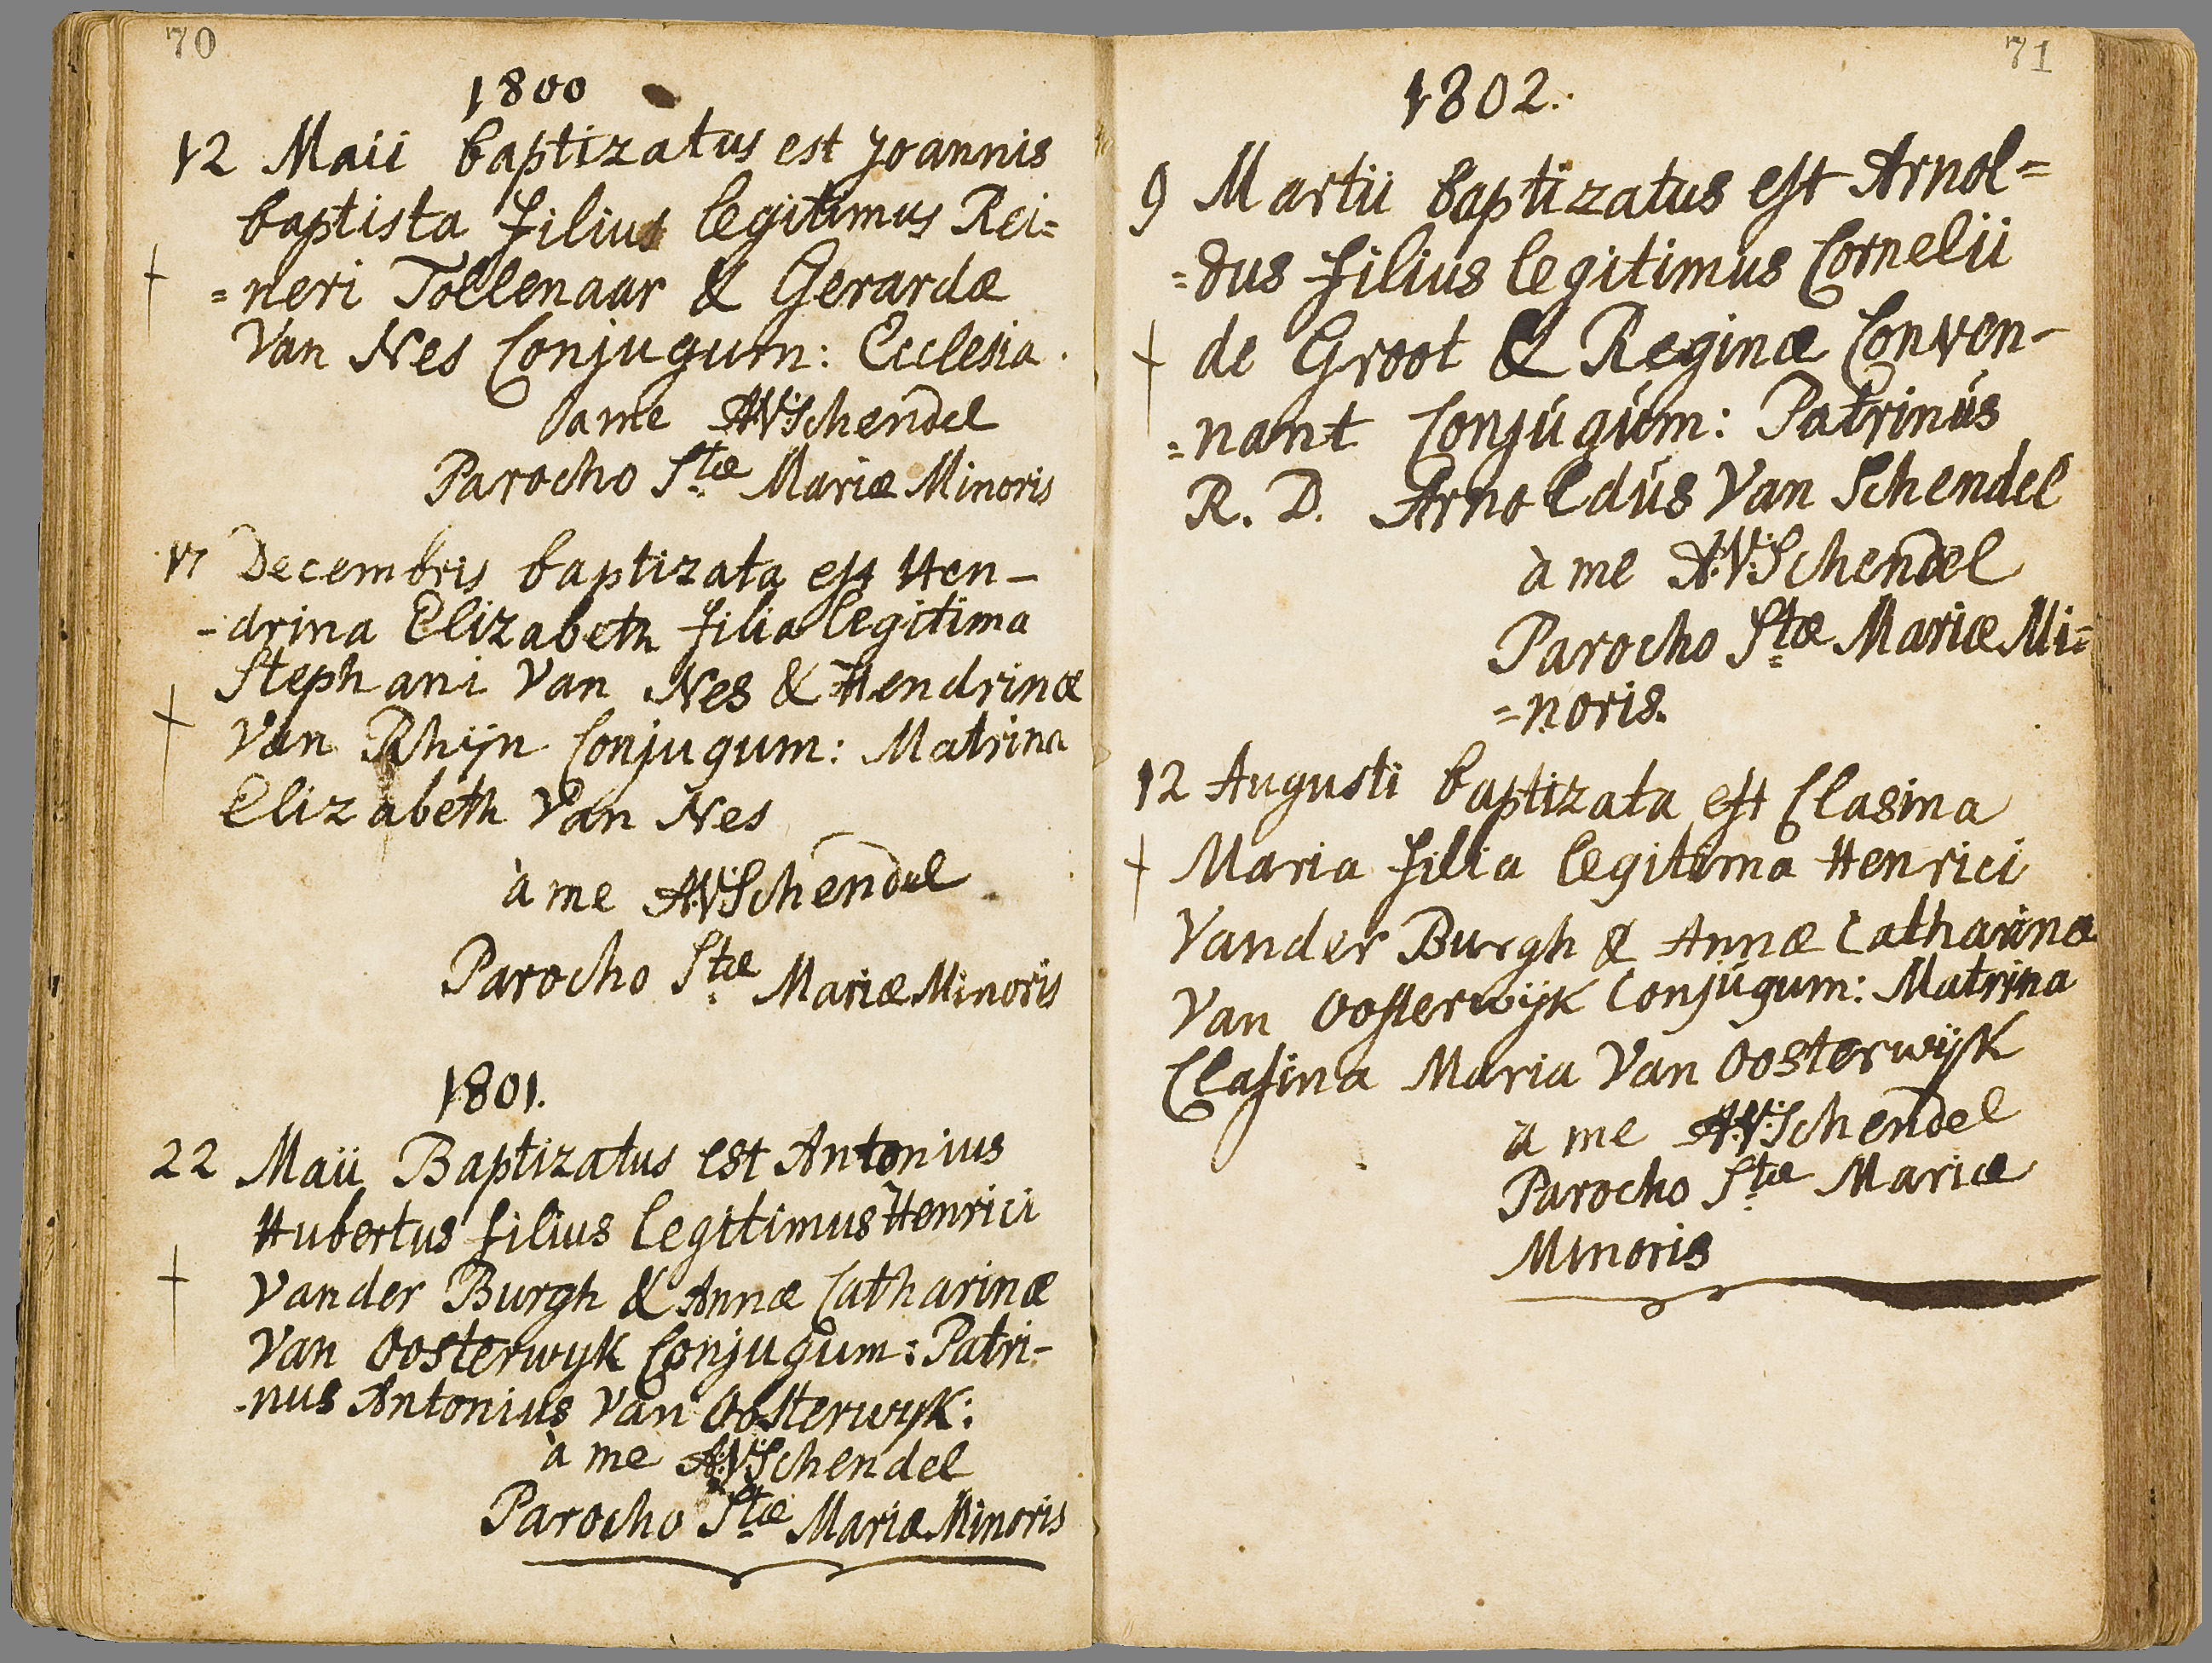 70
1800
12 Maii baptizatus est Joannis
baptista filius legitimus Rei=
=neri Tollenaar & Gerardæ
Van Nes Conjugum: Ecclesia
a me AVSchendel
Parocho Stæ Mariæ Minoris
17 Decembris baptizata est Hen-
-drina Elizabeth filia legitima
Stephani Van Nes & Hendrinæ
Van Rhijn Conjugum: Matrina
Elizabeth Van Nes
à me A:V:Schendel
Parocho Stæ Mariæ Minoris
1801.
22 Maii Baptizatus est Antonius
Hubertus filius legitimus Henrici
Vander Burgh & Annæ Catharinæ
Van Oosterwyk Conjugum: Patri-
-nus Antonius Van Oosterwyk:
à me A:V:Schendel
Parocho Stæ Mariæ Minoris
71
1802.
9 Martii baptizatus est Arnol=
=dus filius legitimus Cornelii
de Groot & Reginæ Conven-
=nant Conjúgúm: Patrinús
R. D. Arnoldús Van Schendel
à me A:V:Schendel
Parocho Stæ Mariæ Mi=
=noris.
12 Augusti baptizata est Clasina
Maria filia legitima Henrici
Vander Burgh & Annæ Catharinæ
Van Oosterwijk Conjúgum: Matrina
Clasina Maria Van Oosterwijk
a me A:V:Schendel
Parocho Stæ Mariæ
Minoris